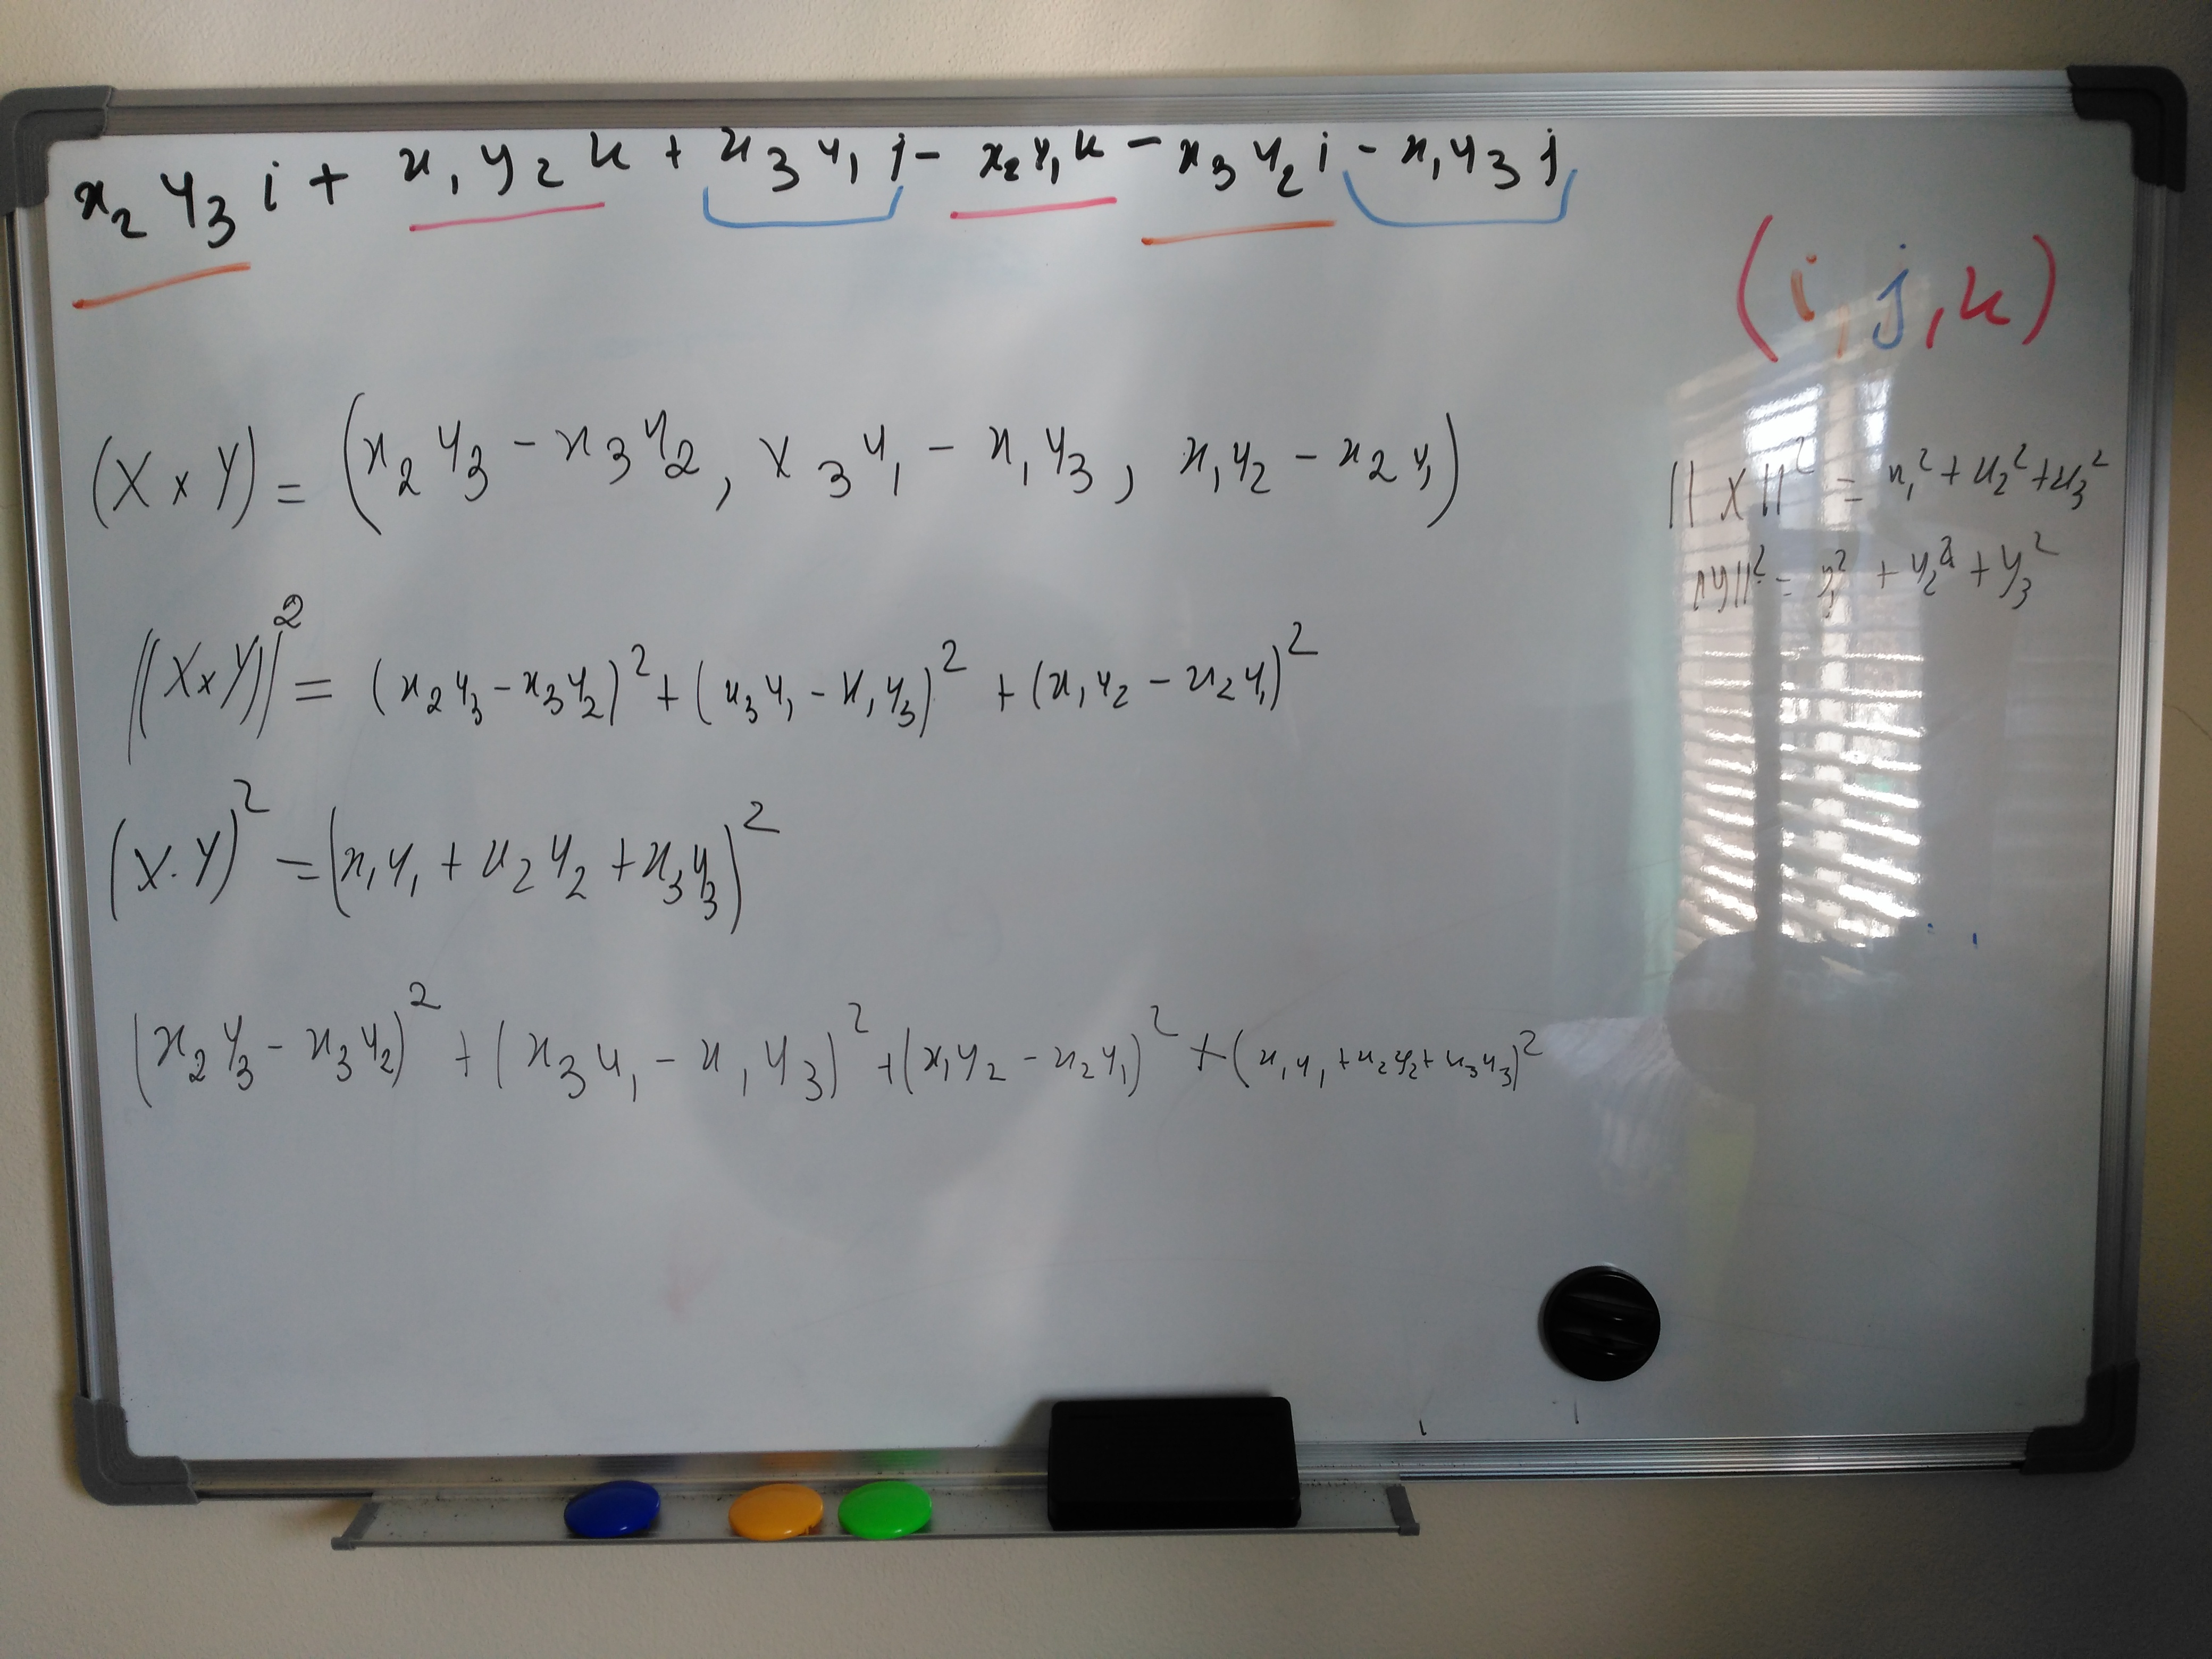 x₂y₃i + x₁y₂k + x₃y₁j - x₂y₁k - x₃y₂i - x₁y₃j
(i, j, k)
(X × Y) = (x₂y₃ - x₃y₂, x₃y₁ - x₁y₃, x₁y₂ - x₂y₁)
||X||² = x₁² + x₂² + x₃²
||y||² = y₁² + y₂² + y₃²
||(X × Y)||² = (x₂y₃ - x₃y₂)² + (x₃y₁ - x₁y₃)² + (x₁y₂ - x₂y₁)²
(X · Y)² = (x₁y₁ + x₂y₂ + x₃y₃)²
(x₂y₃ - x₃y₂)² + (x₃y₁ - x₁y₃)² + (x₁y₂ - x₂y₁)² + (x₁y₁ + x₂y₂ + x₃y₃)²